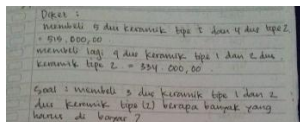 Diket :
membeli 5 dus keramik tipe 1 dan 4 dus tipe 2
= 515.000,00
membeli lagi 4 dus keramik tipe 1 dan 2 dus
keramik tipe 2 = 334.000,00
Soal : membeli 3 dus keramik tipe 1 dan 2
dus keramik tipe (2) berapa banyak yang
harus di bayar ?